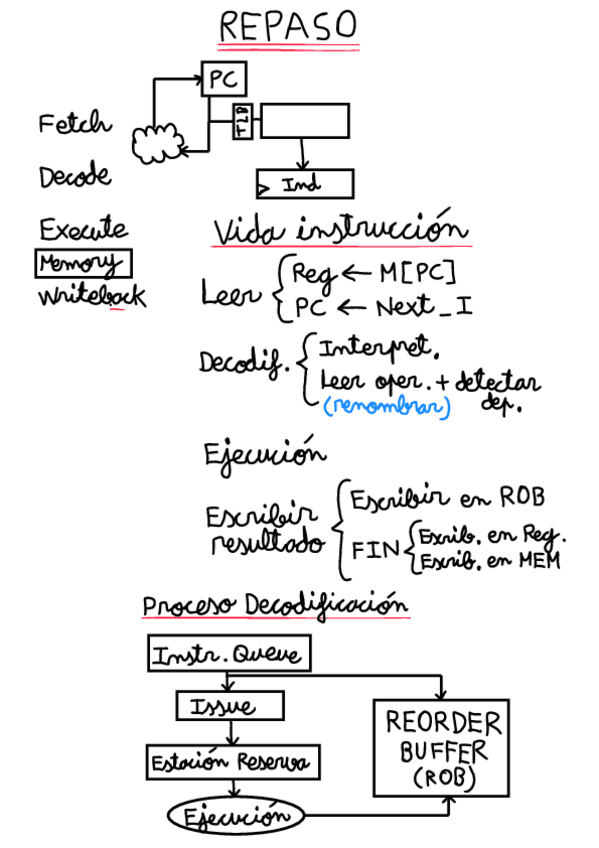 REPASO
PC
Fetch
TLB
Decode
Ind
Execute
Memory
Writeback
Vida instrucción
Leer
Reg ← M[PC]
PC ← Next_I
Decodif.
Interpret.
Leer oper. + detectar dep.
(renombrar)
Ejecución
Escribir resultado
Escribir en ROB
FIN
Escrib. en Reg.
Escrib. en MEM
Proceso Decodificación
Instr. Queue
Issue
Estación Reserva
Ejecución
REORDER
BUFFER
(ROB)